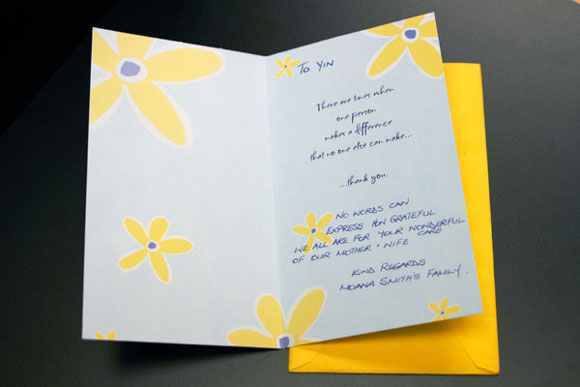 To Yin
There are times when
one person
makes a difference
that no one else can make...
...thank you.
NO WORDS CAN
EXPRESS HOW GRATEFUL
WE ALL ARE FOR YOUR WONDERFUL
CARE
OF OUR MOTHER + WIFE
KIND REGARDS
MOANA SMITH'S FAMILY.